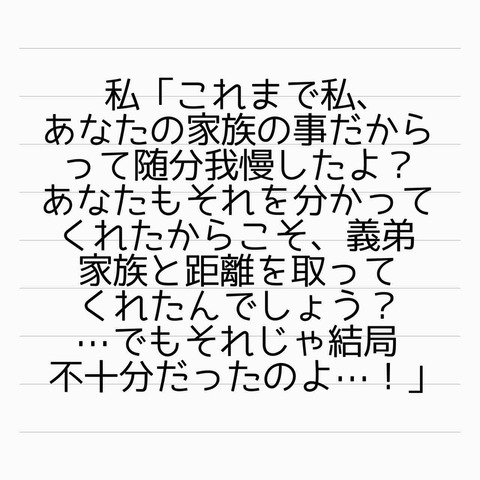 私「これまで私、
あなたの家族の事だから
って随分我慢したよ？
あなたもそれを分かって
くれたからこそ、義弟
家族と距離を取って
くれたんでしょう？
…でもそれじゃ結局
不十分だったのよ…！」